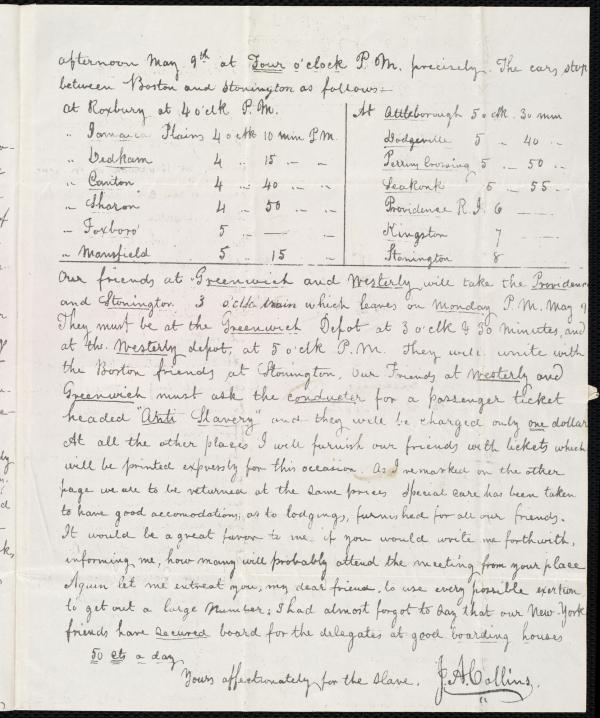 afternoon May 9th at Four o'clock P.M. precisely. The cars stop
between Boston and Stonington as follows:
At Roxbury at 4 o'clk P.M.
" Jamaica Plains 4 o'clk 10 min P.M.
" Dedham 4 .. 15 .. ..
" Canton 4 .. 40 .. ..
" Sharon 4 .. 50 .. ..
" Foxboro' 5 .. — ..
" Mansfield 5 .. 15 ..
At Attleborough 5 o'clk. 30 min
Dodgeville 5 .. 40 ..
Perrin Crossing 5 .. 50 ..
Seakonk 5 .. 55 ..
Providence R.I. 6 —
Kingston 7 —
Stonington 8
Our friends at Greenwich and Westerly will take the Providence
and Stonington 3 o'clk train which leaves on Monday P.M. May 9
They must be at the Greenwich Depot at 3 o'clk & 30 minutes, and
at the Westerly depot, at 5 o'clk P.M. They will unite with
the Boston friends at Stonington. Our Friends at Westerly and
Greenwich must ask the conductor for a passenger ticket
headed "Anti Slavery" and they will be charged only one dollar
At all the other places I will furnish our friends with tickets which
will be printed expressly for this occasion. As I remarked on the other
page we are to be returned at the same prices Special care has been taken
to have good accomodations, as to lodgings, furnished for all our friends.
It would be a great favor to me if you would write me forthwith,
informing me, how many will probably attend the meeting from your place
Again let me entreat you, my dear friend, to use every possible exertion
to get out a large number; I had almost forgot to say that our New-York
friends have secured board for the delegates at good boarding houses
50 cts a day
Yours affectionately for the slave. J.A. Collins.